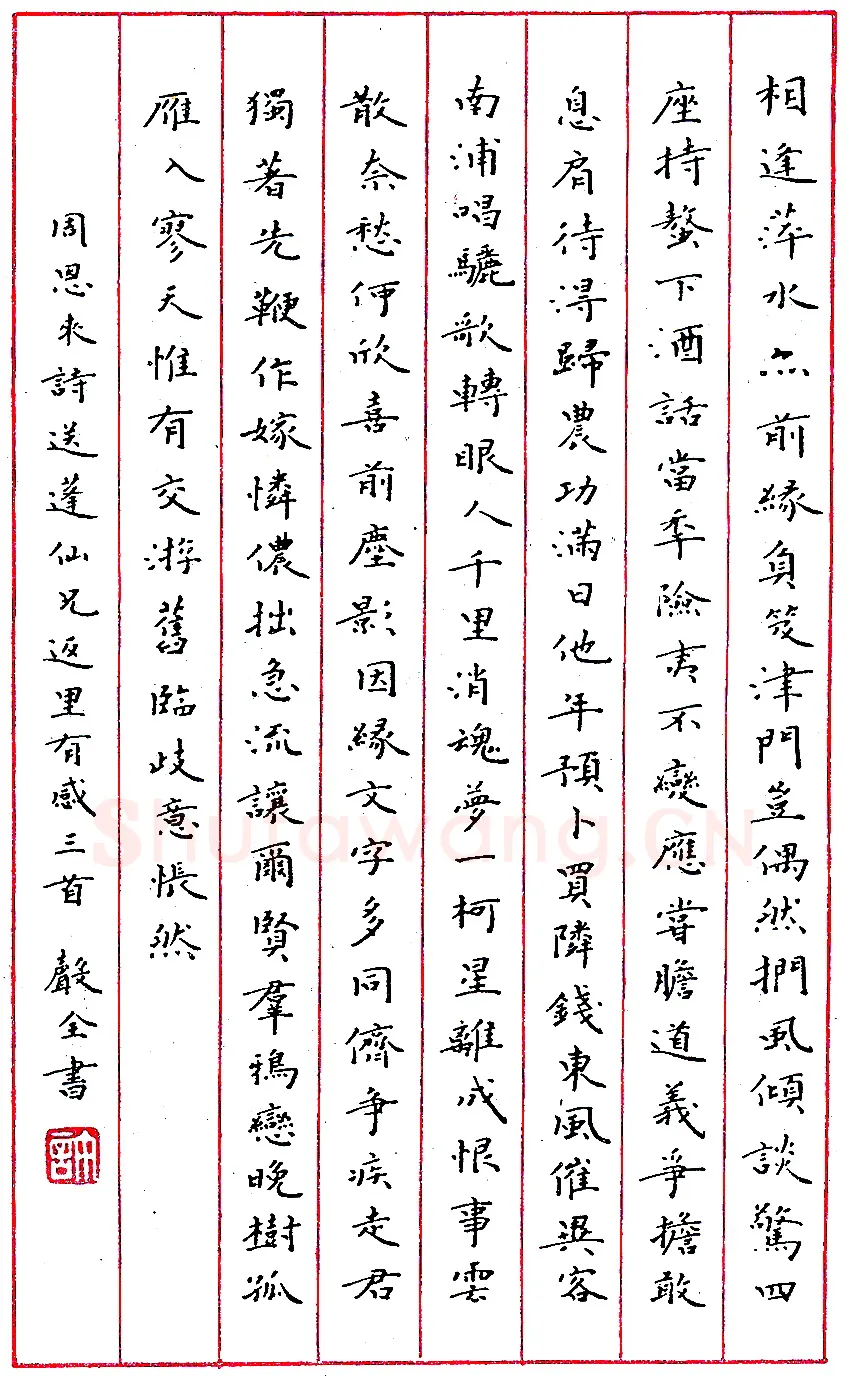 相逢萍水亦前緣負笈津門豈偶然捫虱傾談驚四
座持螯下酒話當年險夷不變應嘗膽道義爭擔敢
息肩待得歸農功滿日他年預卜買鄰錢東風催異客
南浦唱驪歌轉眼人千里消魂夢一柯星離成恨事雲
散奈愁何欣喜前塵影因緣文字多同儕爭疾走君
獨著先鞭作嫁憐儂拙急流讓爾賢群鴉戀晚樹孤
雁入寥天惟有交游舊臨歧意悵然
周恩來詩送蓬仙兄返里有感三首 聲全書
Shufawang.CN